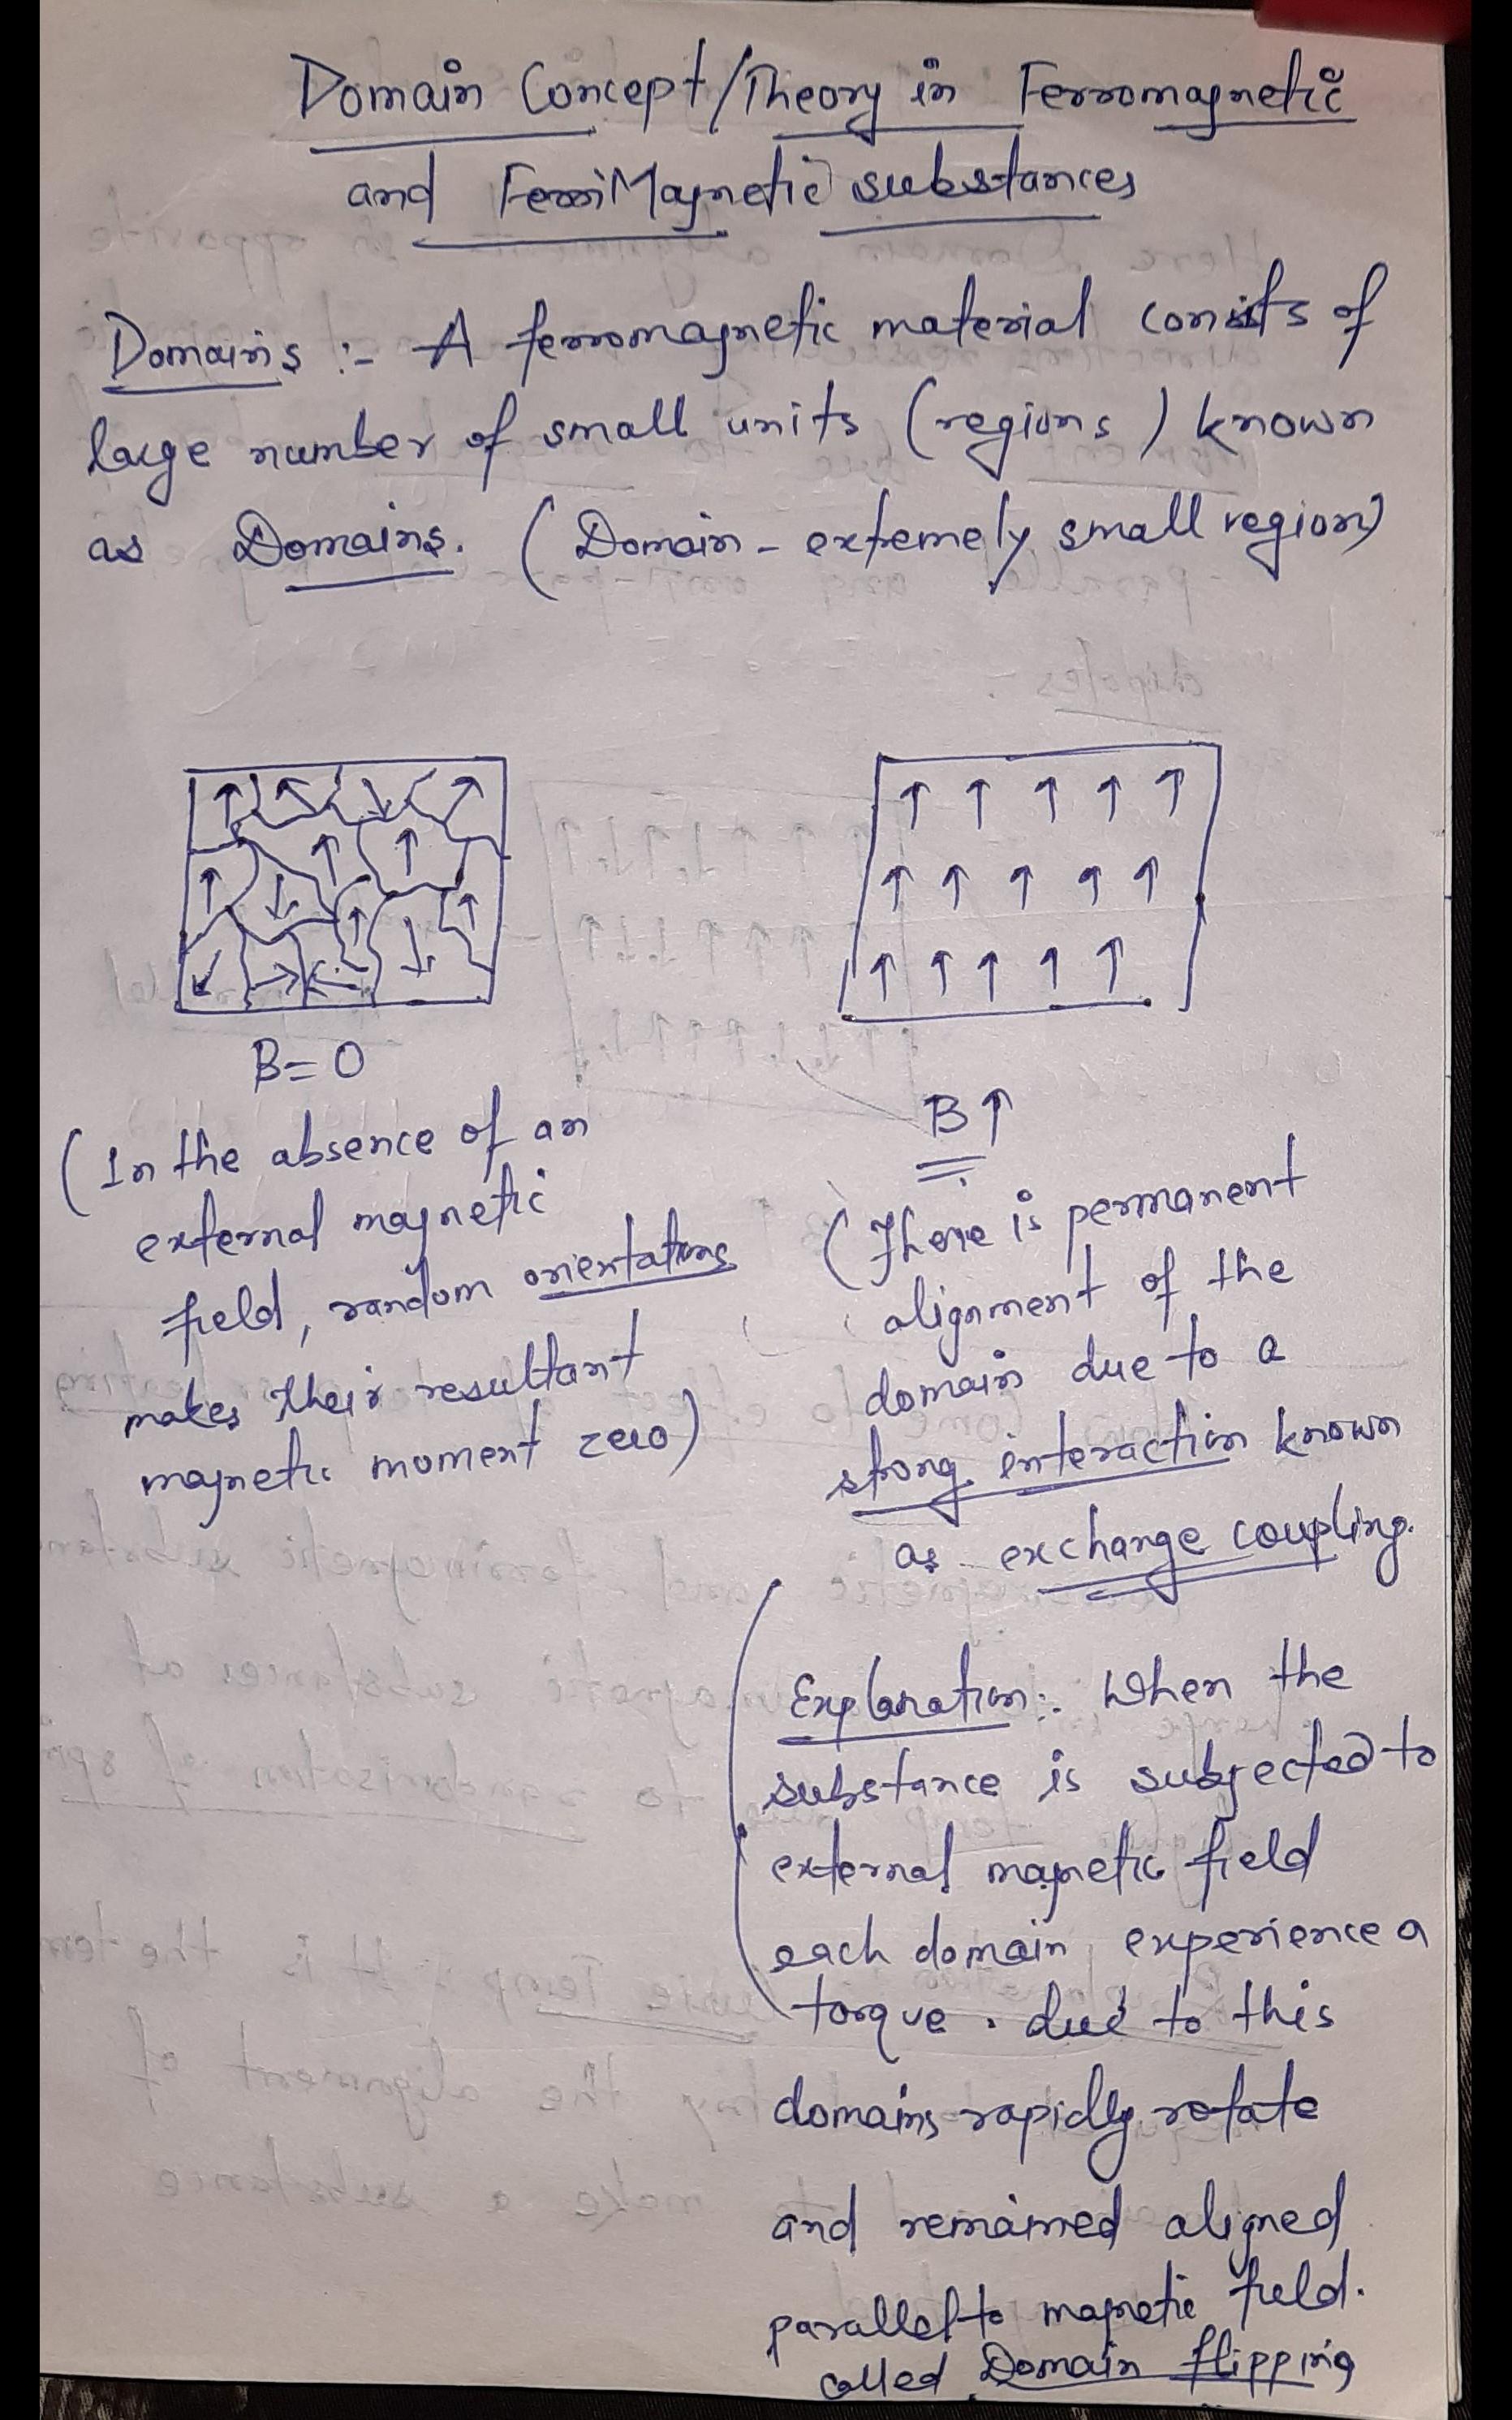 Domain Concept/Theory in Ferromagnetic
and FerriMagnetic substances
Domains :- A ferromagnetic material consists of
large number of small units (regions) known
as Domains. (Domain - extemely small region)
B=0
(In the absence of an
external magnetic
field, random orientations
makes their resultant
magnetic moment zero)
B↑
(There is permanent
alignment of the
domain due to a
strong interaction known
as exchange coupling.
Explanation:. When the
substance is subjected to
external magnetic field
each domain experience a
torque. due to this
domains rapidly rotate
and remained aligned
parallel to magnetic field.
called Domain flipping